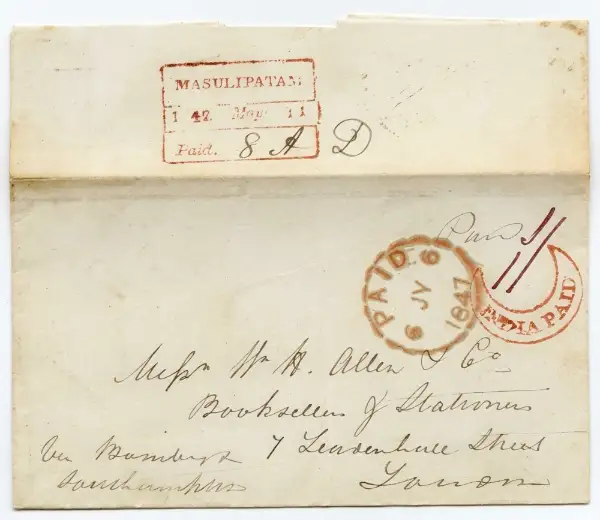 MASULIPATAM
1 47. May 11
Paid. 8 A D
Paid
PAID 6 JY 1847
INDIA PAID
Messrs Wm H. Allen & Co
Booksellers & Stationers
7 Leadenhall Street
London
Via Bombay &
Southampton